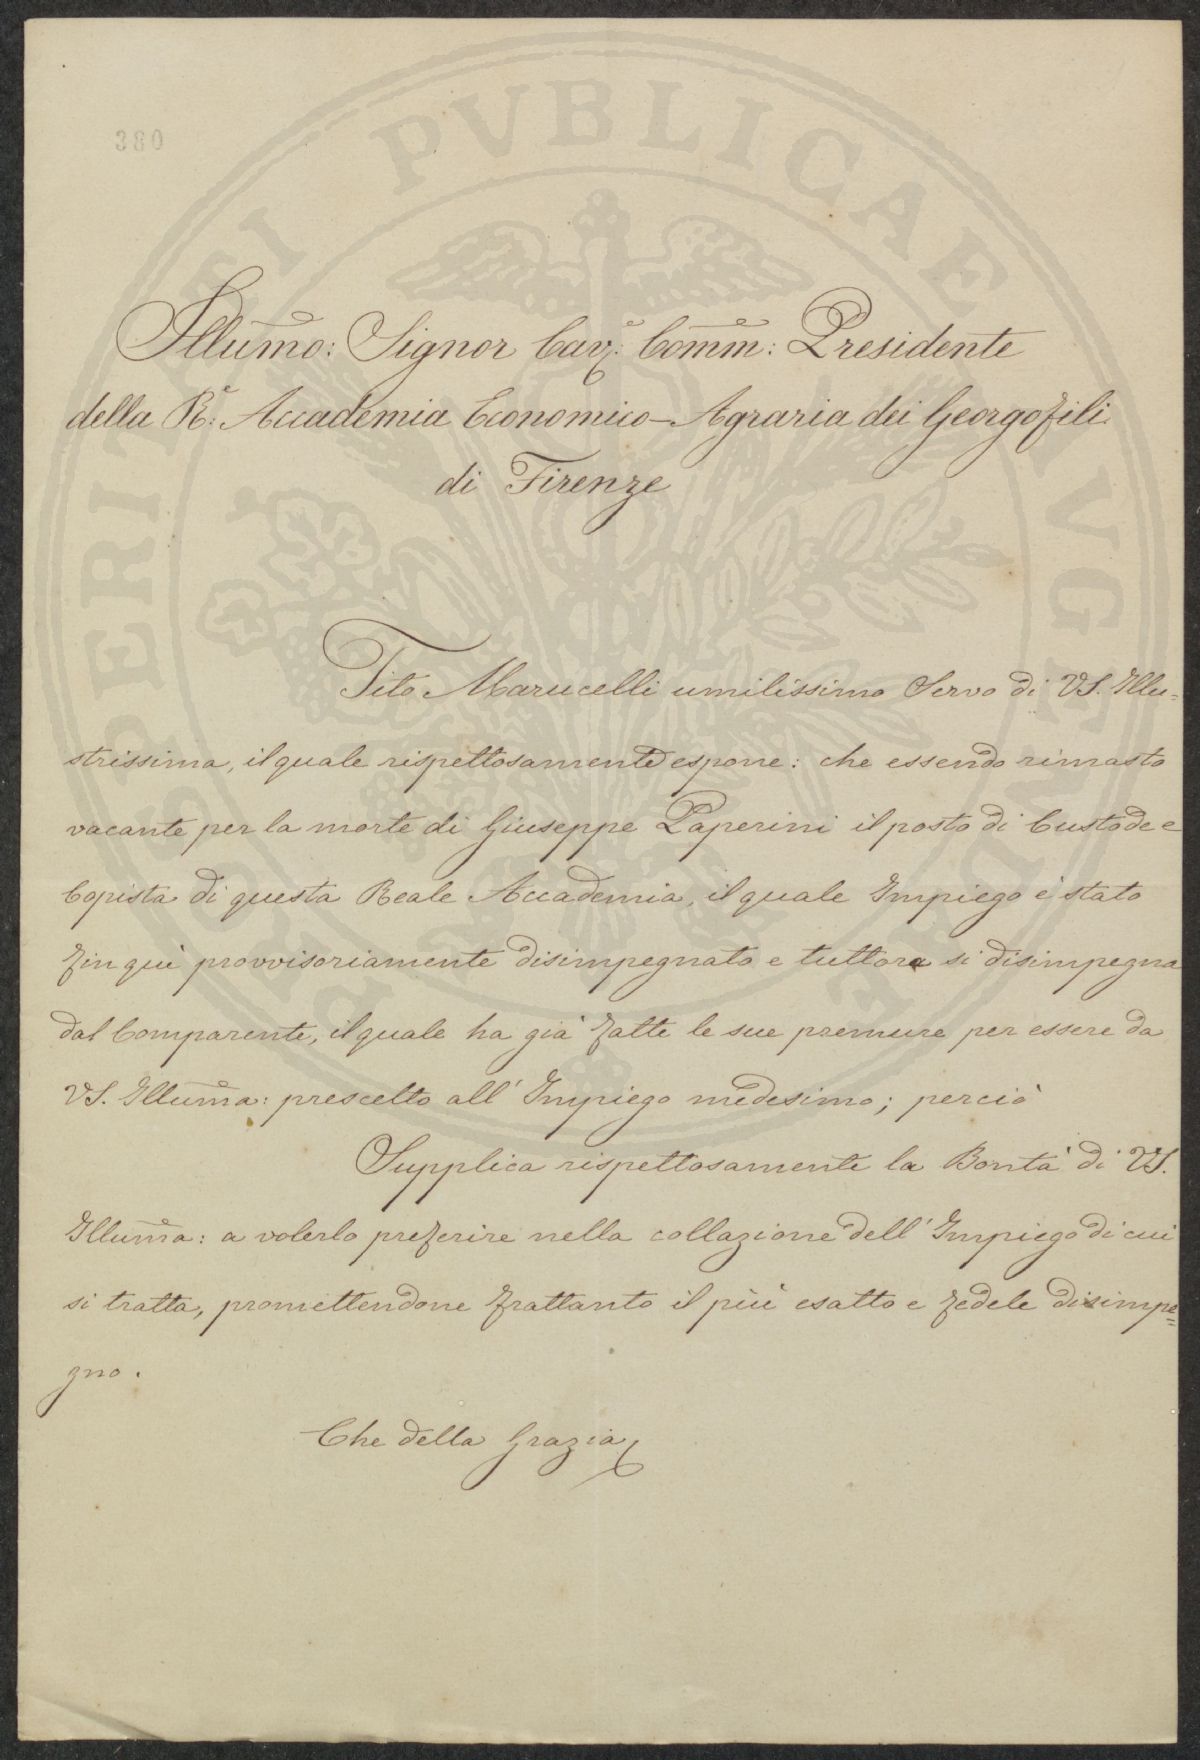 380
Illumo: Signor Cav.e: Comm: Presidente
della R.e: Accademia Economico-Agraria dei Georgofili
di Firenze
Tito Marucelli umilissimo Servo di VS. Illu=
strissima, il quale rispettosamente espone: che essendo rimasto
vacante per la morte di Giuseppe Paperini il posto di Custode e
Copista di questa Reale Accademia, il quale Impiego è stato
fin quì provvisoriamente disimpegnato e tuttora si disimpegna
dal Comparente, il quale ha già fatte le sue premure per essere da
VS. Illuma: prescelto all' Impiego medesimo; perciò
Supplica rispettosamente la Bontà di VS.
Illuma: a volerlo preferire nella collazione dell' Impiego di cui
si tratta, promettendone frattanto il più esatto e fedele disimpe=
gno.
Che della Grazia
PROSPERITATI PVBLICAE AVGENDAE